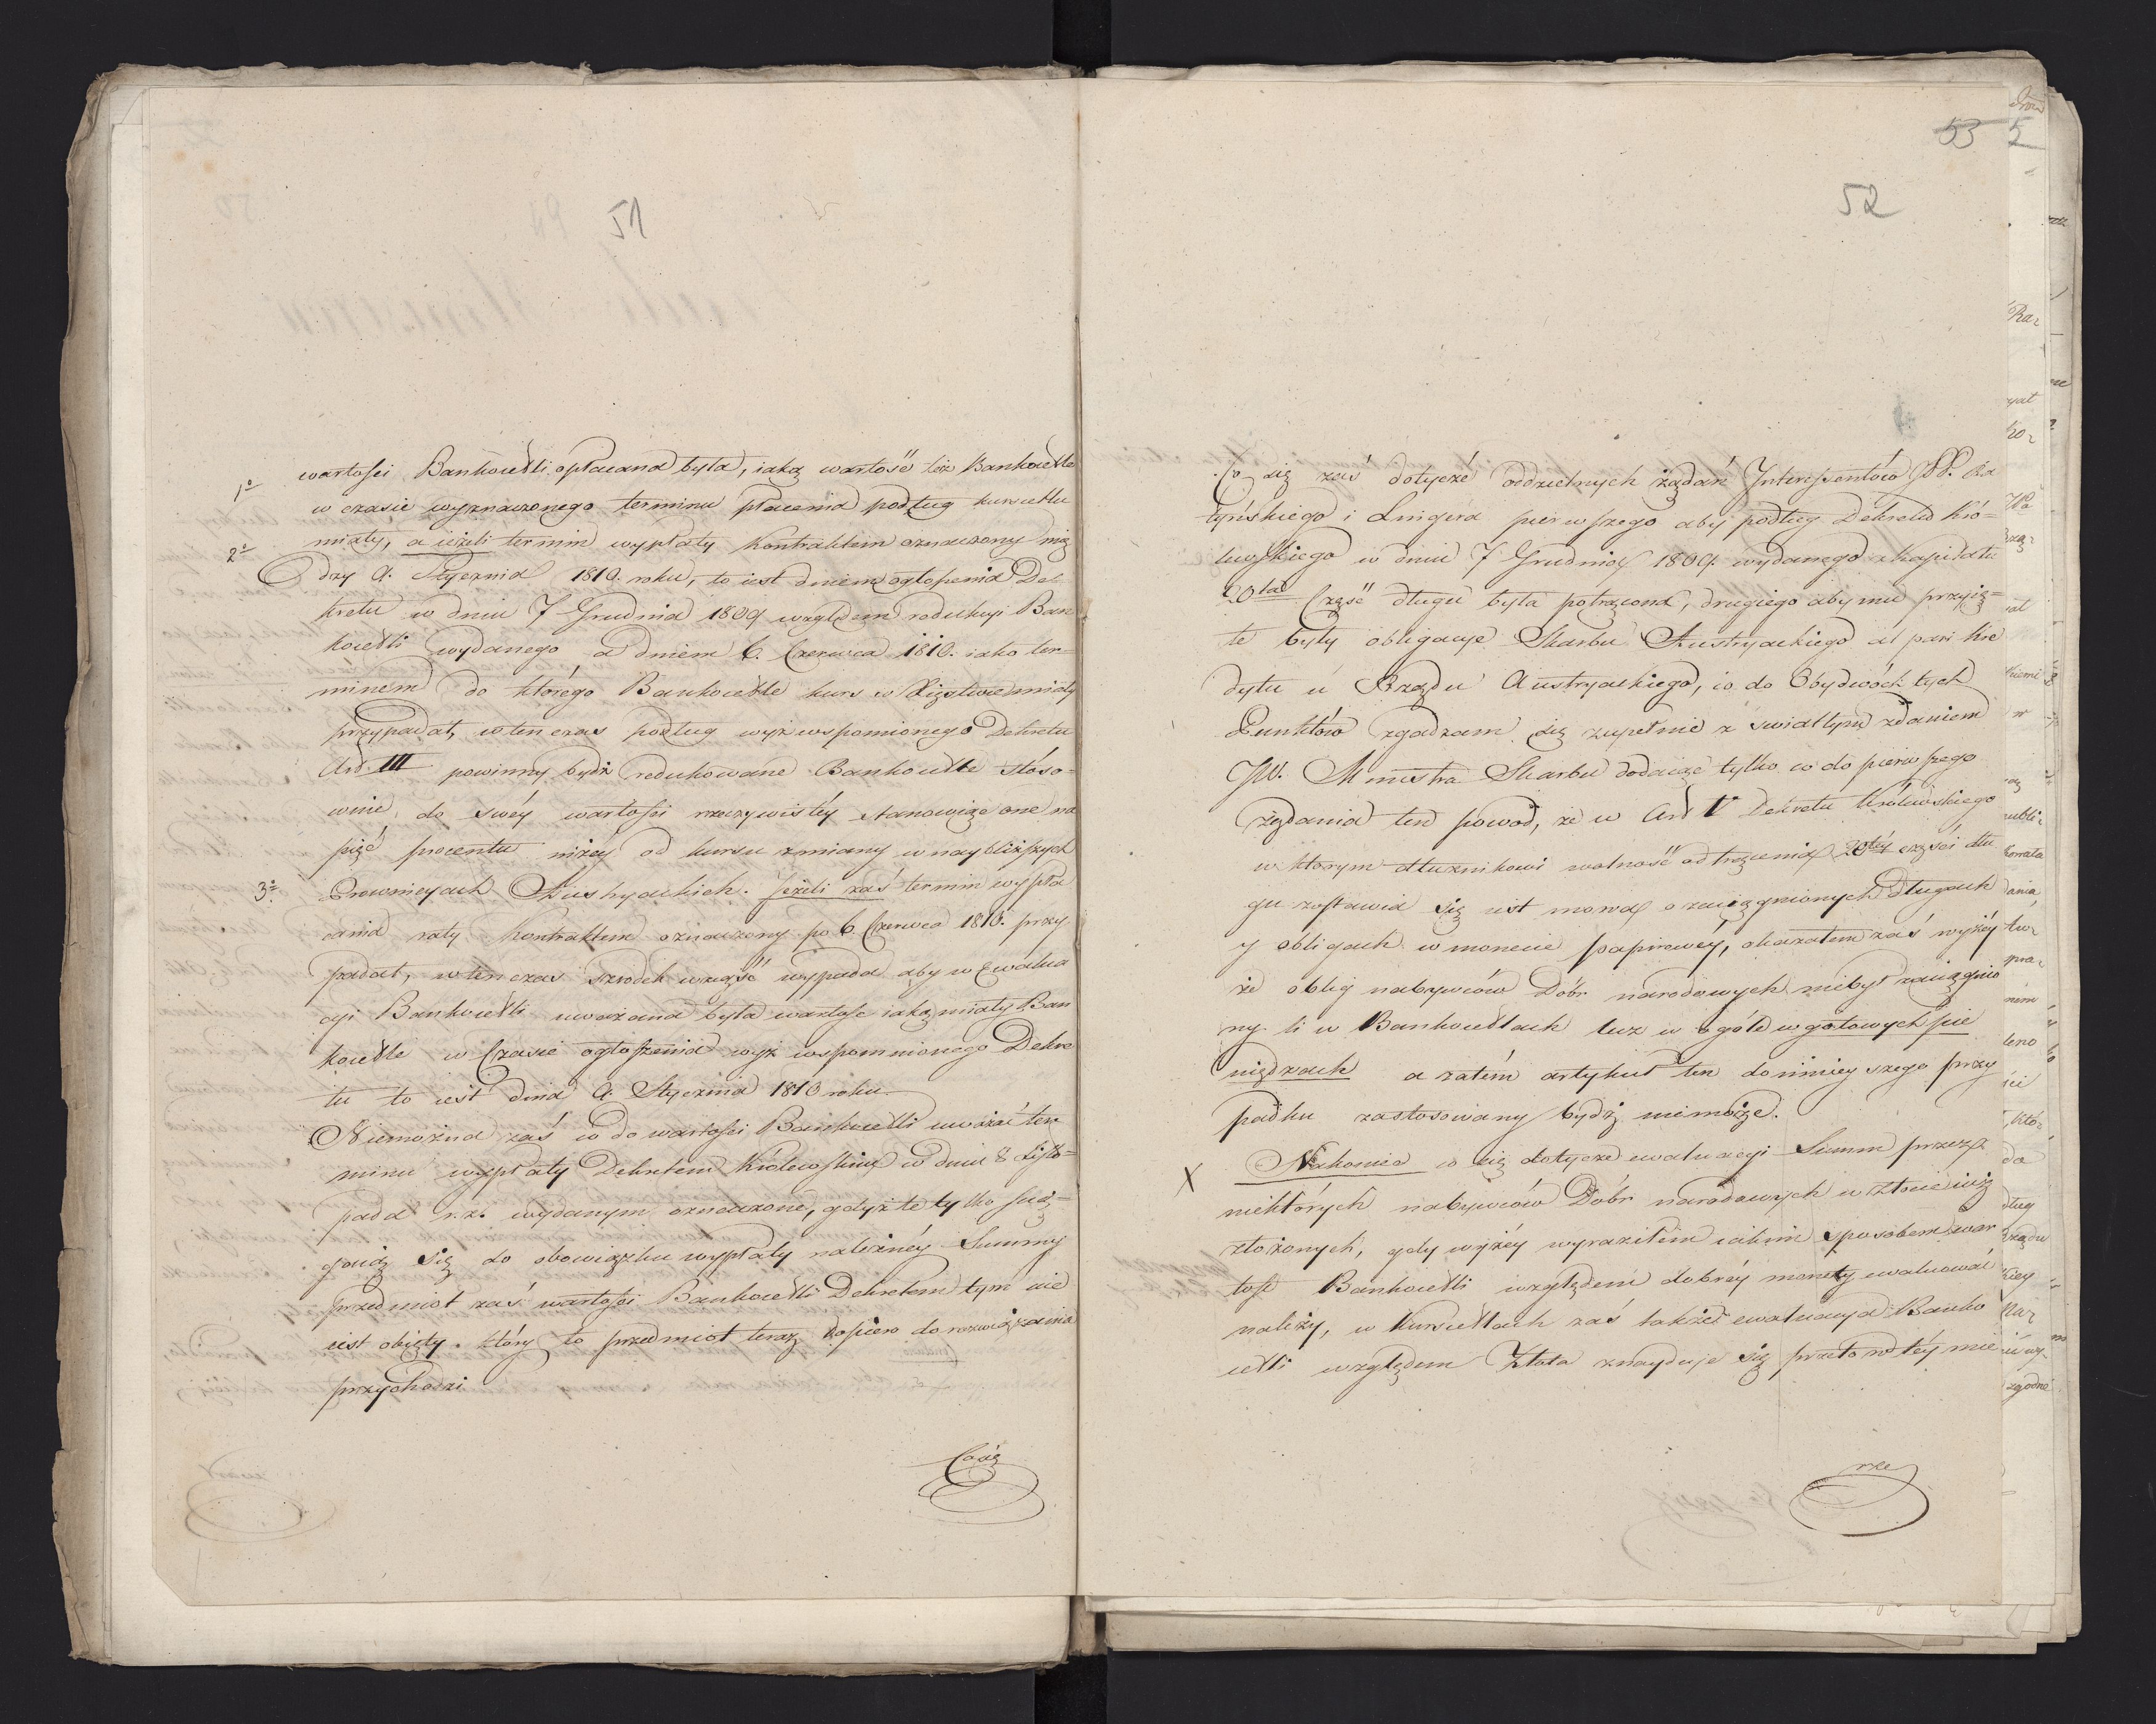 51
1º wartości Bankocetli opłacana była, iaką wartość też Bankocetle
w czasie wyznaczonego terminu płacenia podług kurcetlu
2º miały, a ieżeli termin wypłaty Kontraktem oznaczony mię
dzy 9. Stycznia 1810. roku, to iest dniem ogłoszenia De-
kretu w dniu 7 Grudnia 1809 względem redukcyi Ban
kocetli wydanego a dniem 6. Czerwca 1810. iako ter-
minem do którego Bankocetle kurs w Xięstwie miały
przypadał, wtenczas podług wyż wspomionego Dekretu
Art. III powinny bydź redukowane Bankocetle stóso-
wnie do swéy wartości rzeczywistéy stanowiąc one na
pięć procentu niżéy od kursu zmiany w naybliższych
3º Prowincyach Austryackich. Jeżeli zaś termin wypła
cenia raty Kontraktem oznaczony po 6 Czerwca 1810. przy
padał, wtenczas srodek wziąść wypada aby w Ewalua
cyi Bankocetli uważana była wartość iaką miały Ban
kocetle w Czasie ogłoszenia wyż wspomnionego Dekre
tu to iest dnia 9. Stycznia 1810 roku.
Niemożna zaś co do wartości Bankocetli uważać ter
minu wypłaty Dekretem Królewskim w dniu 8 Listo-
pada r.z. wydanym oznaczone, gdyż te tylko ścią-
gaią się do obowiązku wypłaty należnéy Summy
przedmiot zaś wartości Bankocetli Dekretem tym nie
iest obięty. który to przedmiot teraz dopiero do rozwiązania
przychodzi
Cosię
53 5
52
Co się zaś dotycze oddzielnych żądań Interessentów JPP. Ra
tyńskiego i Lingera pierwszego aby podług Dekretu Kró-
lewskiego w dniu 7 Grudnia 1809. wydanego z kapitału
20ta Część długu była potrącona, drugiego aby mu przyię-
te były obligacye Skarbu Austryackiego al pari kre
dytu u Rządu Austryackiego, co do Obydwóch tych
Punktów zgadzam się zupełnie z światłym zdaniem
JW. Ministra Skarbu dodaiąc tylko co do pierwszego
żądania ten powod, że w Art V Dekretu Królewskiego
w ktorym dłużnikowi wolność odtrącenia 20téy części dłu
gu zostawia się iest mowa o zaciągnionych Długach
y obligach w monecie papirowéy, okazałem zaś wyżéy
że oblig nabywców Dóbr narodowych niebył zaciągnio
ny li w Bankocetlach lecz w ogóle w gotowych pie
niądzach a zatém artykuł ten do ninieyszego przy
padku zastosowany bydź niemoże.
X Nakoniec co się dotycze ewaluacyi Summ przez
niektórych nabywców Dóbr narodowych w złocie iuż
złożonych, gdy wyżéy wyraziłem iakim sposobem war
tość Bankocetli względem dobréy monety ewaluować
należy, w Kurcetlach zaś także ewaluacya Banko
cetli względem Złota znayduje się, przeto w téy mie
rze